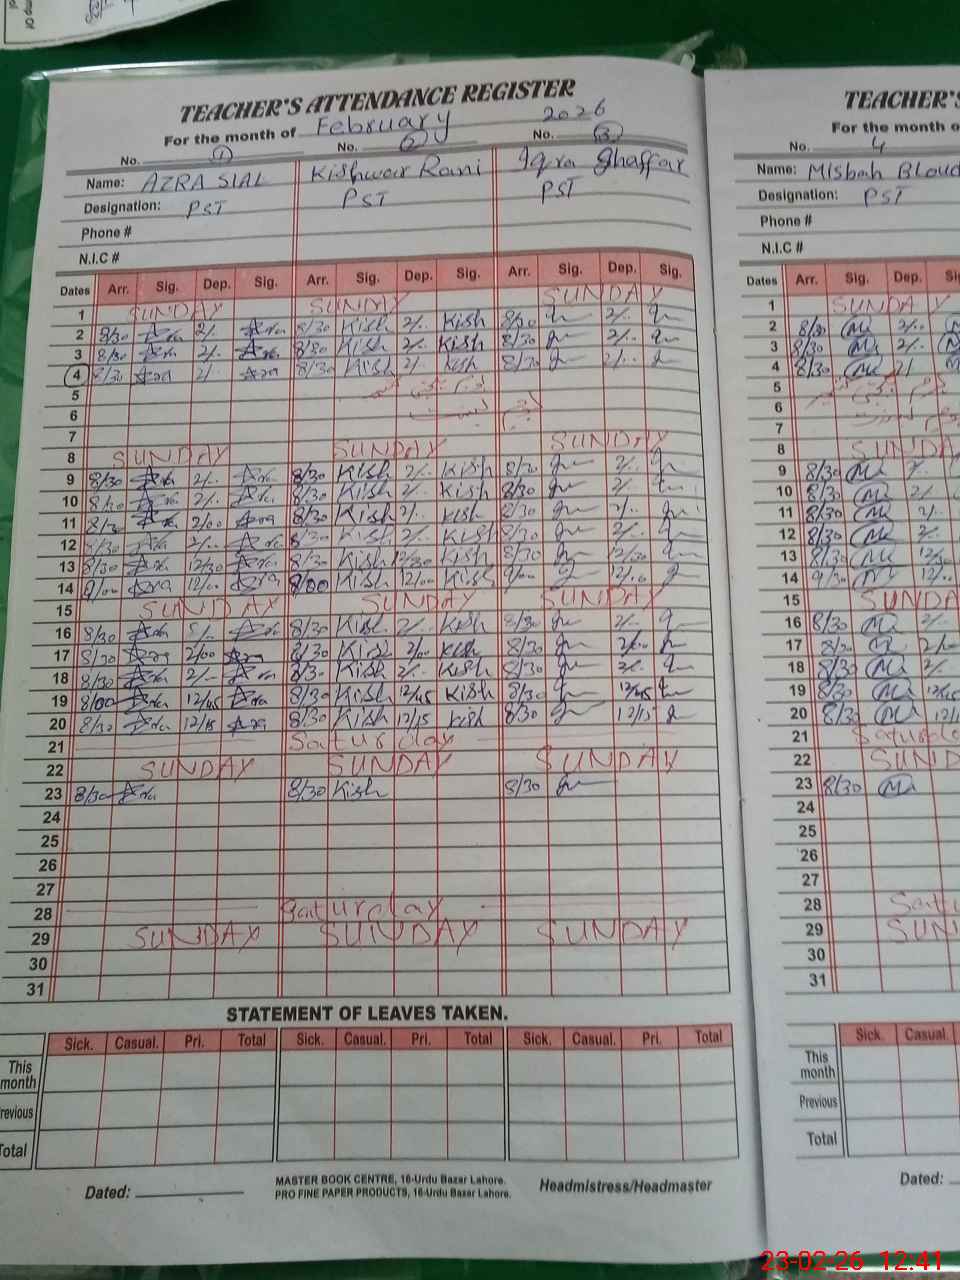 TEACHER'S ATTENDANCE REGISTER
For the month of February 2026
No. 1 No. 2 No. 3
Name: AZRA SIAL Kishwar Rani Iqra Ghaffar
Designation: PST PST PST
Phone #
N.I.C #
Dates Arr. Sig. Dep. Sig. Arr. Sig. Dep. Sig. Arr. Sig. Dep. Sig.
1 SUNDAY SUNDAY SUNDAY
2 8/30 2/.. 8/30 Kish 2/.. Kish 8/30 2/..
3 8/30 2/.. 8/30 Kish 2/.. Kish 8/30 2/..
4 8/30 2/.. 8/30 Kish 2/.. Kish 8/30 2/..
5
6
7
8 SUNDAY SUNDAY SUNDAY
9 8/30 2/.. 8/30 Kish 2/.. Kish 8/30 2/..
10 8/30 2/.. 8/30 Kish 2/.. Kish 8/30 2/..
11 8/30 2/00 8/30 Kish 2/.. Kish 8/30 2/..
12 8/30 2/.. 8/30 Kish 2/.. Kish 8/30 2/..
13 8/30 12/30 8/30 Kish 12/30 Kish 8/30 12/30
14 9/00 12/00 9/00 Kish 12/00 Kish 9/00 12/..
15 SUNDAY SUNDAY SUNDAY
16 8/30 8/30 Kish 2/.. Kish 8/30 2/..
17 8/30 2/00 8/30 Kish 2/00 Kish 8/30 2/00
18 8/30 2/.. 8/30 Kish 2/.. Kish 8/30 2/..
19 8/00 12/45 8/30 Kish 12/45 Kish 8/30 12/45
20 8/30 12/15 8/30 Kish 12/15 Kish 8/30 12/15
21 Saturday
22 SUNDAY SUNDAY SUNDAY
23 8/30 8/30 Kish 8/30
24
25
26
27
28 Saturday
29 SUNDAY SUNDAY SUNDAY
30
31
STATEMENT OF LEAVES TAKEN.
Sick. Casual. Pri. Total Sick. Casual. Pri. Total Sick. Casual. Pri. Total
This month
revious
Total
Dated:
MASTER BOOK CENTRE, 16-Urdu Bazar Lahore.
PRO FINE PAPER PRODUCTS, 16-Urdu Bazar Lahore.
Headmistress/Headmaster
TEACHER'S
For the month o
No. 4
Name: Misbah
Designation: PST
Phone #
N.I.C #
Dates Arr. Sig. Dep.
1 SUNDAY
2 8/30 2/00
3 8/30 2/..
4 8/30 2/
5
6
7
8 SUNDAY
9 8/30
10 8/30 2/
11 8/30 2/..
12 8/30 2/..
13 8/30 12/3
14 9/30 12/..
15 SUNDA
16 8/30 2/..
17 8/30
18 8/30 2/..
19 8/30 12/45
20 8/30 12/1
21 Saturda
22 SUND
23 8/30
24
25
26
27
28 Satu
29 SUND
30
31
Sick. Casual
This month
Previous
Total
Dated:
23-02-26 12:41